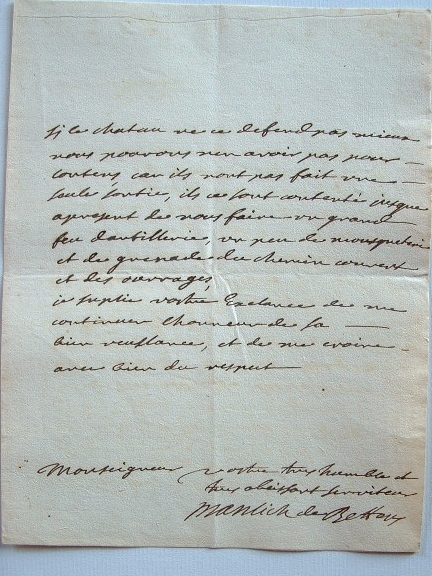 si le chateau ne ce defend pas mieux
nous pouvons n'en avoir pas pour
contens, car ils nont pas fait une
seule sortie, ils ce sont contenté jusque
apresent de nous faire un grand
feu d'artillerie, un peu de mousqueterie
et de grenade du chemin couvert
et des ouvrages,
je suplie vostre Exelance de me
continuer l'honneur de sa
bien veillance, et de me croire
avec bien du respect
Monseigneur vostre tres humble et
tres obeissant serviteur
de